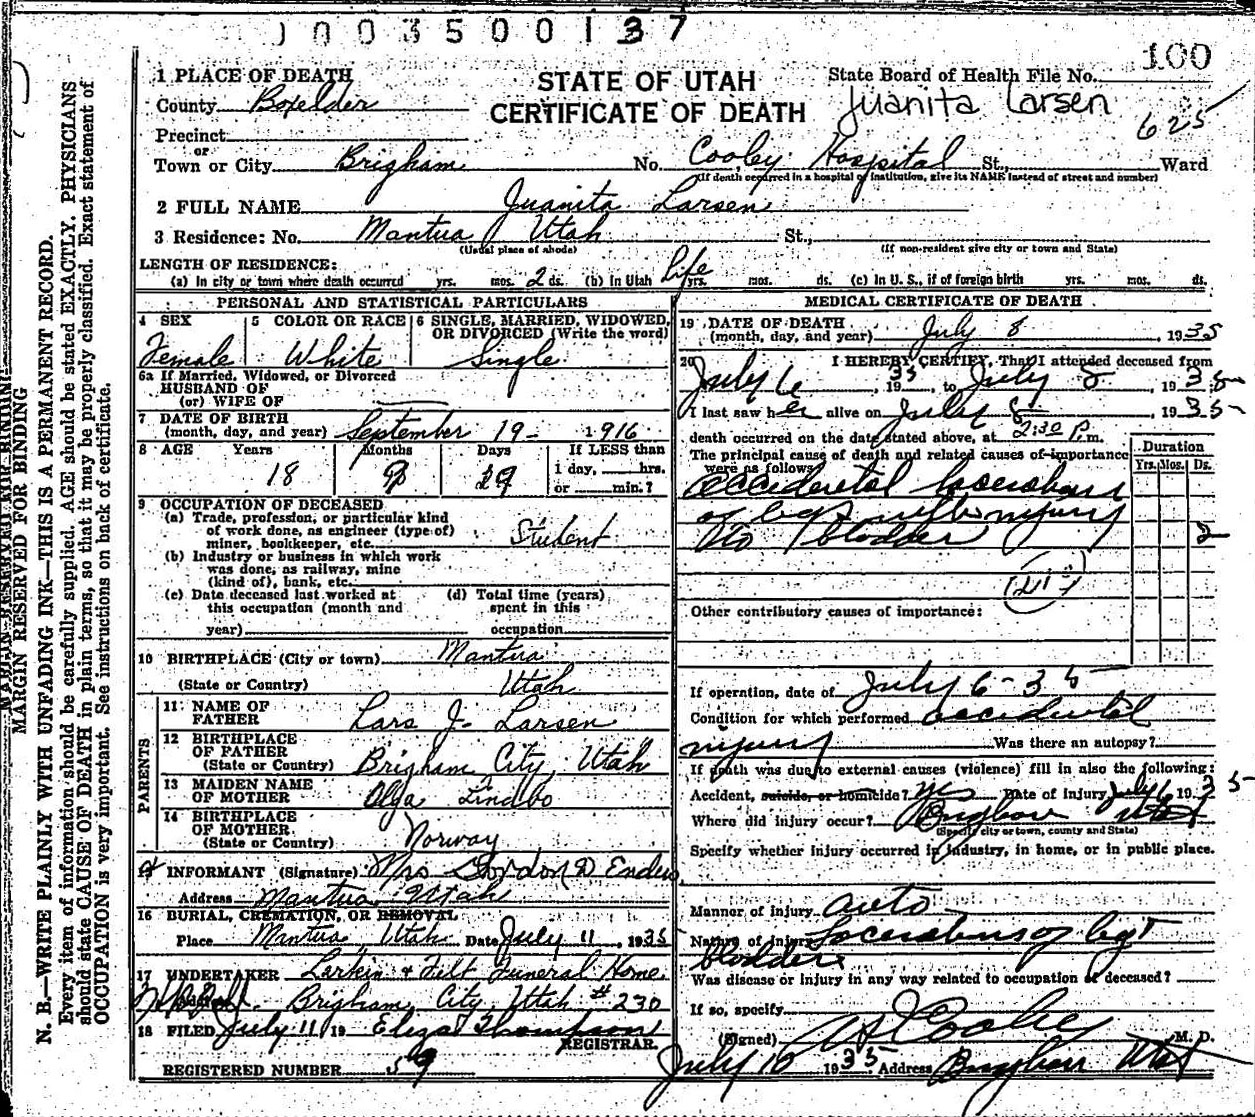 1003500137
100
1 PLACE OF DEATH
STATE OF UTAH
State Board of Health File No.
County Boxelder
CERTIFICATE OF DEATH
Juanita Larsen
625
Precinct
or
Town or City Brigham No. Cooley Hospital St., Ward
(If death occurred in a hospital or institution, give its NAME instead of street and number)
2 FULL NAME Juanita Larsen
3 Residence: No. Mantua Utah St.,
(Usual place of abode) (If non-resident give city or town and State)
LENGTH OF RESIDENCE:
(a) In city or town where death occurred yrs. mos. 2 ds. (b) In Utah life yrs. mos. ds. (c) In U. S., if of foreign birth yrs. mos. ds.
PERSONAL AND STATISTICAL PARTICULARS
4 SEX Female
5 COLOR OR RACE White
6 SINGLE, MARRIED, WIDOWED, OR DIVORCED (Write the word) Single
6a If Married, Widowed, or Divorced
HUSBAND OF
(or) WIFE OF
7 DATE OF BIRTH
(month, day, and year) September 19- 1916
8 AGE Years Months Days If LESS than
18 9 19 1 day, hrs.
or min.?
9 OCCUPATION OF DECEASED
(a) Trade, profession, or particular kind
of work done, as engineer (type of)
miner, bookkeeper, etc. Student
(b) Industry or business in which work
was done, as railway, mine
(kind of), bank, etc.
(c) Date deceased last worked at
this occupation (month and
year)
(d) Total time (years)
spent in this
occupation
10 BIRTHPLACE (City or town) Mantua
(State or Country) Utah
PARENTS
11 NAME OF
FATHER Lars J. Larsen
12 BIRTHPLACE
OF FATHER
(State or Country) Brigham City, Utah
13 MAIDEN NAME
OF MOTHER Olga Lindbo
14 BIRTHPLACE
OF MOTHER
(State or Country) Norway
INFORMANT (Signature) Mrs Gordon D Enders
Address Mantua, Utah
16 BURIAL, CREMATION, OR REMOVAL
Place Mantua, Utah Date July 11, 1935
17 UNDERTAKER Larkin & Felt Funeral Home
Address Brigham City, Utah #230
18 FILED July 11 19 Eliza Thompson
REGISTRAR.
REGISTERED NUMBER 59
MEDICAL CERTIFICATE OF DEATH
19 DATE OF DEATH
(month, day, and year) July 8, 1935
20 I HEREBY CERTIFY, That I attended deceased from
July 6, 1935, to July 8, 1935
I last saw her alive on July 8, 1935
death occurred on the date stated above, at 2:30 P.m.
The principal cause of death and related causes of importance
were as follows:
Duration
Yrs. Mos. Ds.
accidental lacerations
of leg with injury
to bladder 2
Other contributory causes of importance:
If operation, date of July 6-35
Condition for which performed accidental
injury Was there an autopsy?
If death was due to external causes (violence) fill in also the following:
Accident, suicide, or homicide? yes Date of injury July 6 1935
Where did injury occur? Brigham Utah
(Specify city or town, county and State)
Specify whether injury occurred in industry, in home, or in public place.
Manner of injury auto
Nature of injury Lacerations of leg &
bladder
Was disease or injury in any way related to occupation of deceased?
If so, specify
(Signed) Cooley M. D.
July 10 1935 Address Brigham Utah
MARGIN RESERVED FOR BINDING
N. B.—WRITE PLAINLY WITH UNFADING INK—THIS IS A PERMANENT RECORD.
Every item of information should be carefully supplied. AGE should be stated EXACTLY. PHYSICIANS
should state CAUSE OF DEATH in plain terms, so that it may be properly classified. Exact statement of
OCCUPATION is very important. See instructions on back of certificate.